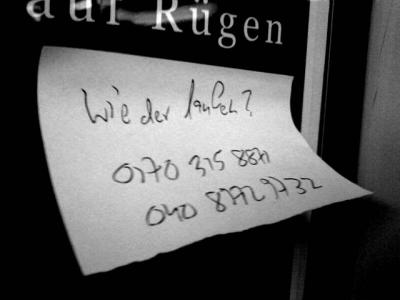 auf Rügen
Wieder laufen?
0170 315 8871
040 87929732